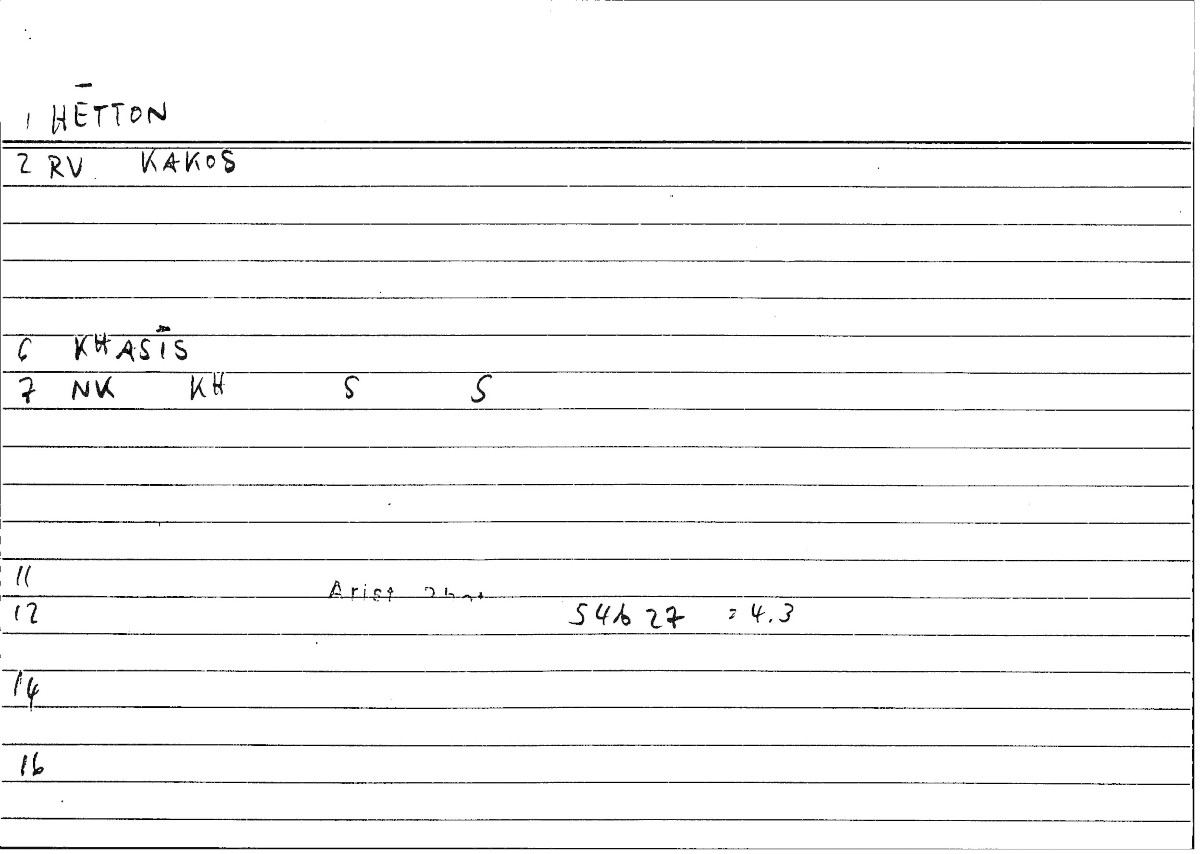 1 HĒTTON
2 RV KAKOS
6 KHASĪS
7 NK KH S S
11 Arist
12 54b 27 = 4.3
14
16